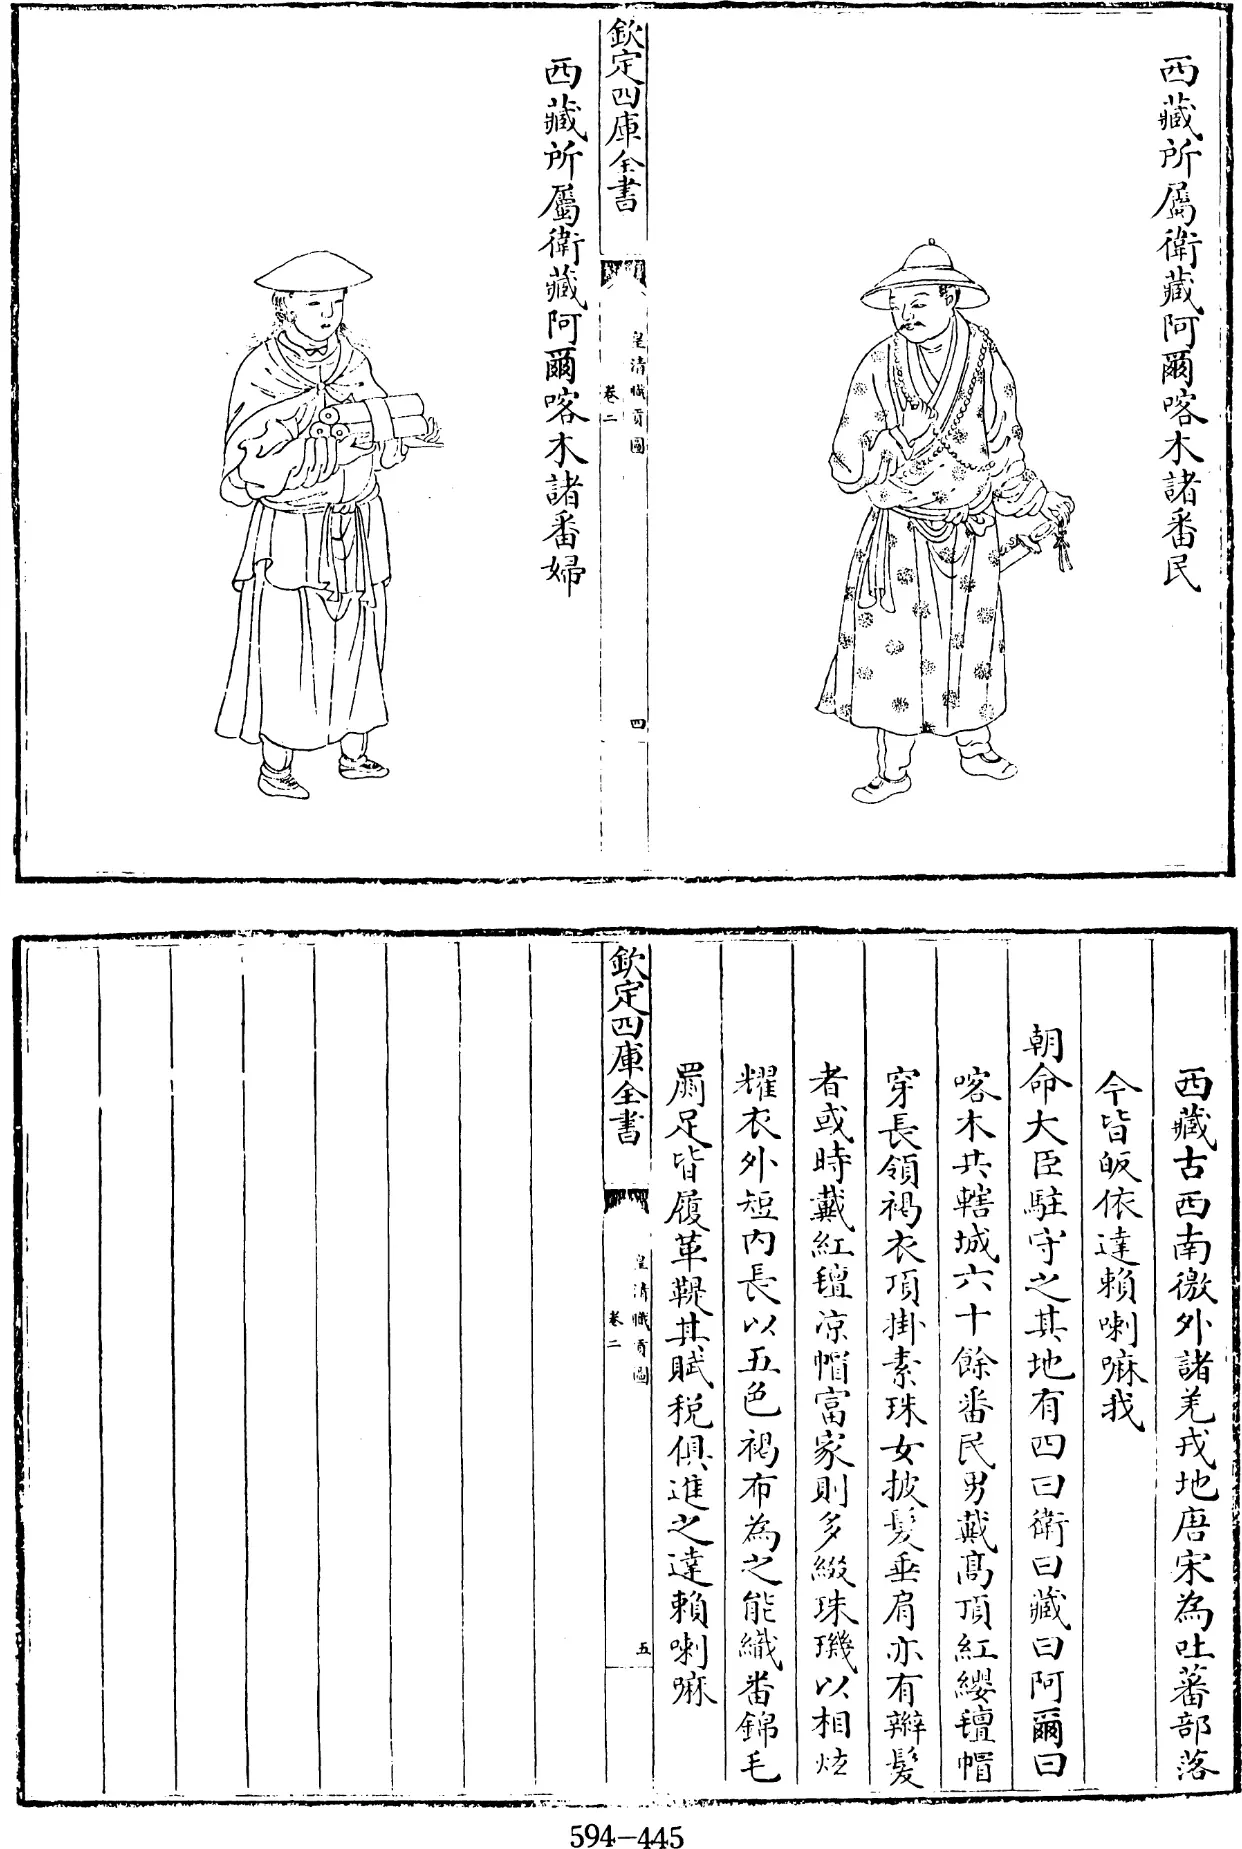 西藏所屬衛藏阿爾喀木諸番民
欽定四庫全書
皇清職貢圖
卷二
四
西藏所屬衛藏阿爾喀木諸番婦
西藏古西南徼外諸羌戎地唐宋為吐蕃部落
今皆皈依達賴喇嘛我
朝命大臣駐守之其地有四曰衛曰藏曰阿爾曰
喀木共轄城六十餘番民男戴高頂紅纓氊帽
穿長領褐衣項掛素珠女披髮垂肩亦有辮髮
者或時戴紅氊凉帽富家則多綴珠璣以相炫
耀衣外短內長以五色褐布為之能織番錦毛
罽足皆履革鞮其賦稅俱進之達賴喇嘛
欽定四庫全書
皇清職貢圖
卷二
五
594-445